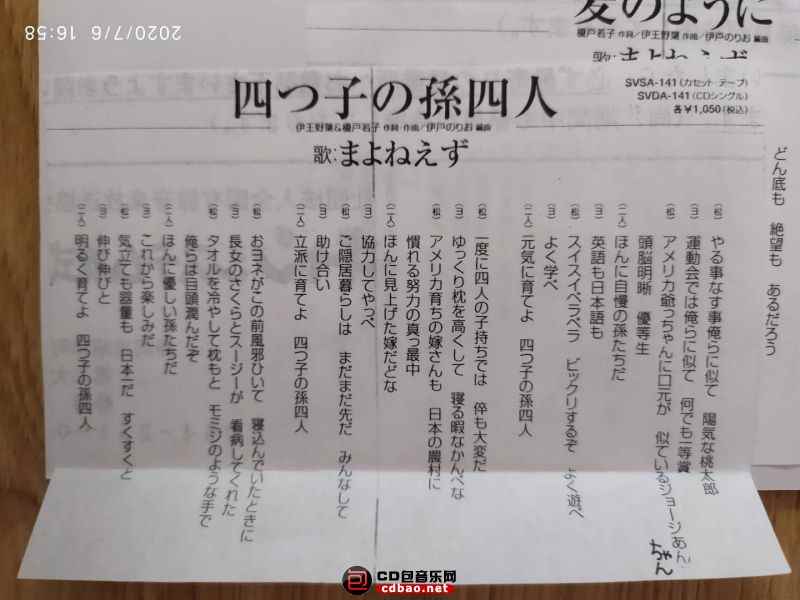 2020/7/6 16:58
愛のように
榎戸若子 作詞／伊王野葉 作曲／伊戸のりお 編曲
歌:まよねえず
SVSA-141(カセット・テープ)
SVDA-141(CDシングル)
各￥1,050(税込)
四つ子の孫四人
伊王野葉&榎戸若子 作詞 作曲／伊戸のりお 編曲
歌:まよねえず
どん底も 絶望も あるだろう
(松) やる事なす事俺らに似て 陽気な桃太郎
(ヨ) 運動会では俺らに似て 何でも一等賞
(松) アメリカ爺っちゃんに口元が 似ているジョージあん.
ちゃん
頭脳明晰 優等生
(二人) ほんに自慢の孫たちだ
(ヨ) 英語も日本語も
(松) スイスイペラペラ ビックリするぞ よく遊べ
(ヨ) よく学べ
(二人) 元気に育てよ 四つ子の孫四人
(松) 一度に四人の子持ちでは 倅も大変だ
(ヨ) ゆっくり枕を高くして 寝る暇なかんべな
(松) アメリカ育ちの嫁さんも 日本の農村に
慣れる努力の真っ最中
(二人) ほんに見上げた嫁だどな
(ヨ) 協力してやっぺ
(松) ご隠居暮らしは まだまだ先だ みんなして
(ヨ) 助け合い
(二人) 立派に育てよ 四つ子の孫四人
(松) おヨネがこの前風邪ひいて 寝込んでいたときに
(ヨ) 長女のさくらとスージーが 看病してくれた
(松) タオルを冷やして枕もと モミジのような手で
俺らは目頭潤んだぞ
(二人) ほんに優しい孫たちだ
(ヨ) これから楽しみだ
(松) 気立ても器量も 日本一だ すくすくと
(ヨ) 伸び伸びと
(二人) 明るく育てよ 四つ子の孫四人
CD包音乐网
cdbao.net